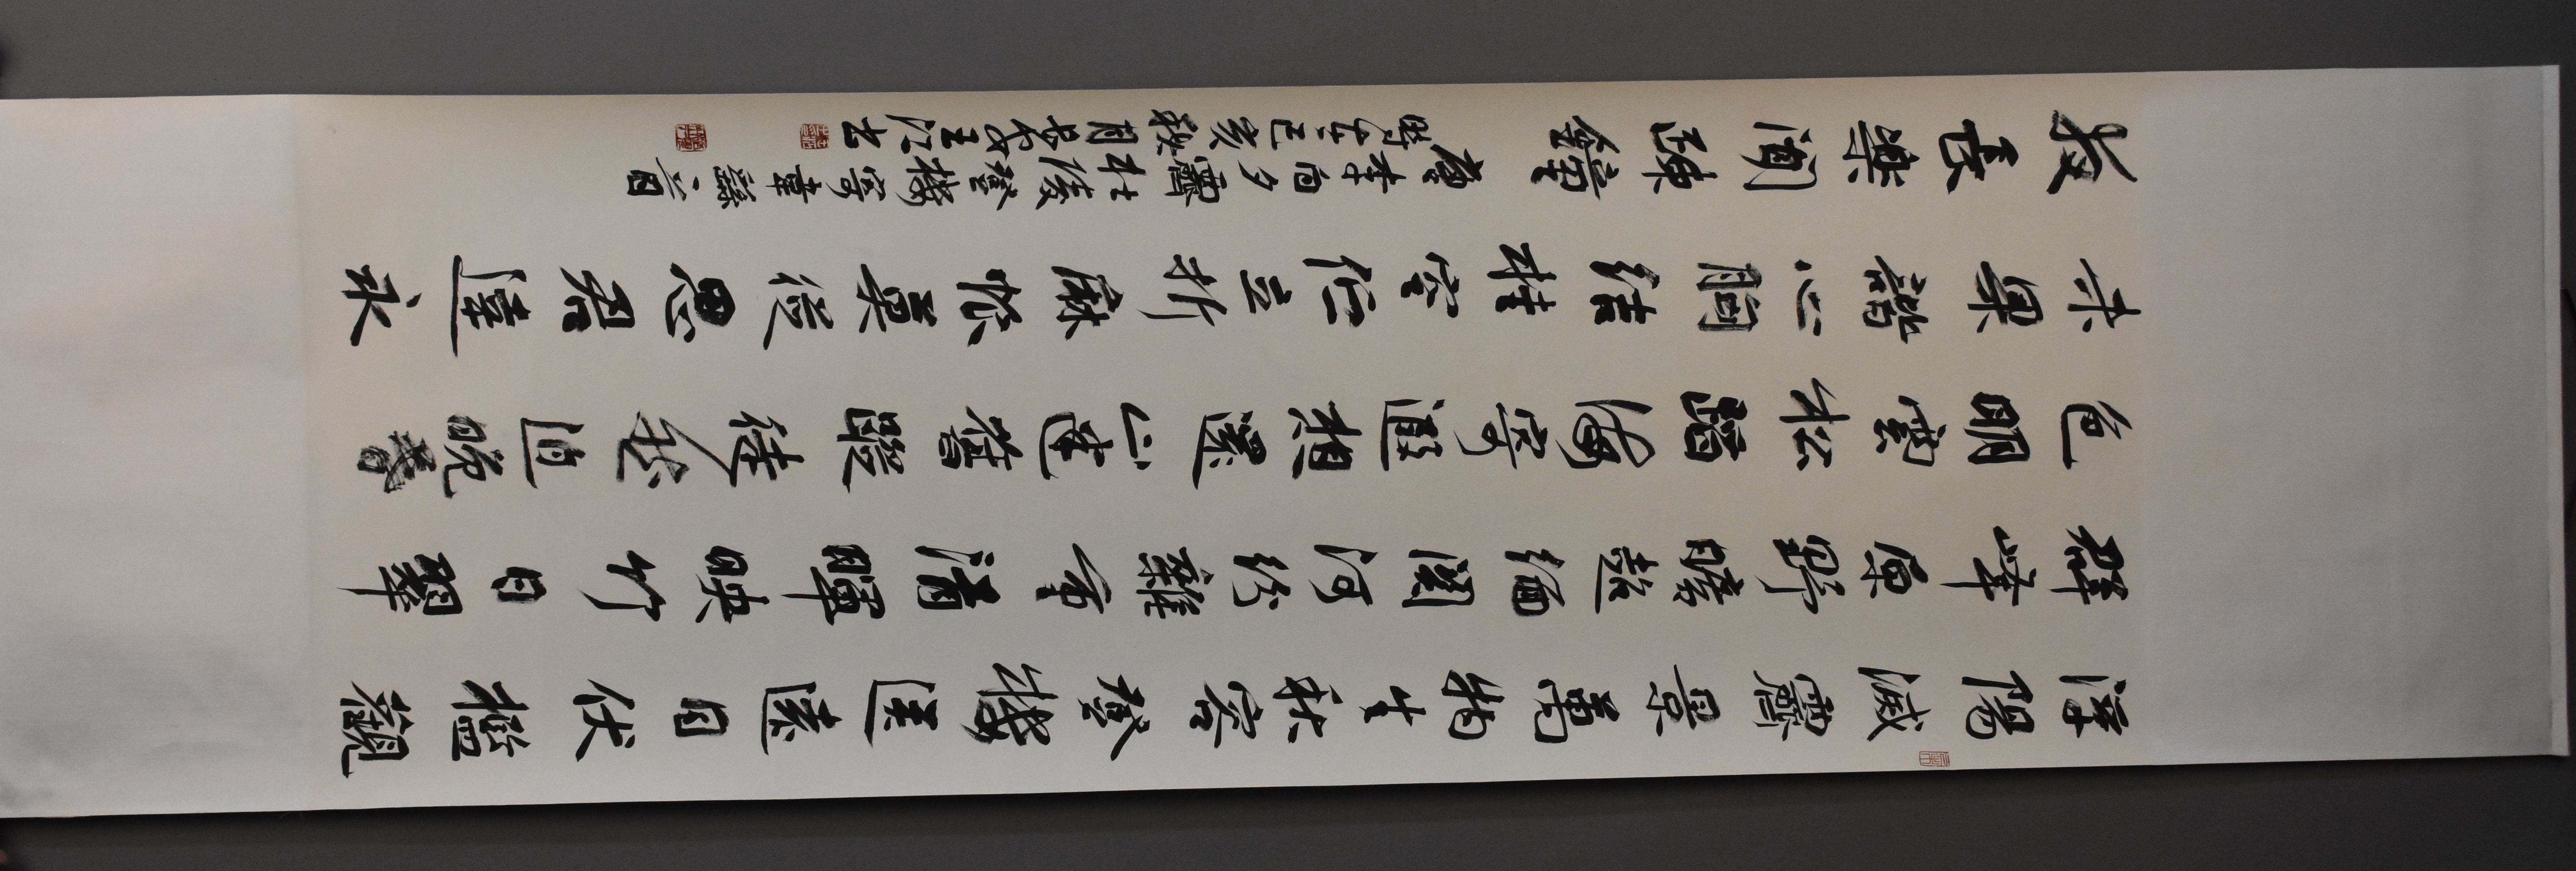 浮陽滅霽景萬物生秋容登樓送遠目伏檻觀
群峰原野曠超緬關河紛雜重清暉映竹日翠
色明雲松蹈海寄遐想還山迷舊蹤徒然迫晚暮
未果諧心胸結桂空佇立折麻恨莫從思君達永
夜長樂聞疎鐘
唐李白夕霽杜陵登樓寄韋繇一首
時在己亥秋月